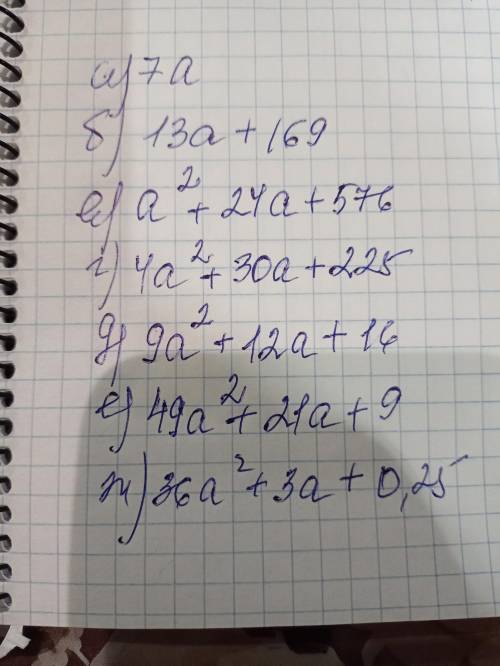 а) 7a
б) 13a + 169
в) a² + 24a + 576
г) 4a² + 30a + 225
д) 9a² + 12a + 16
е) 49a² + 21a + 9
ж) 36a² + 3a + 0,25